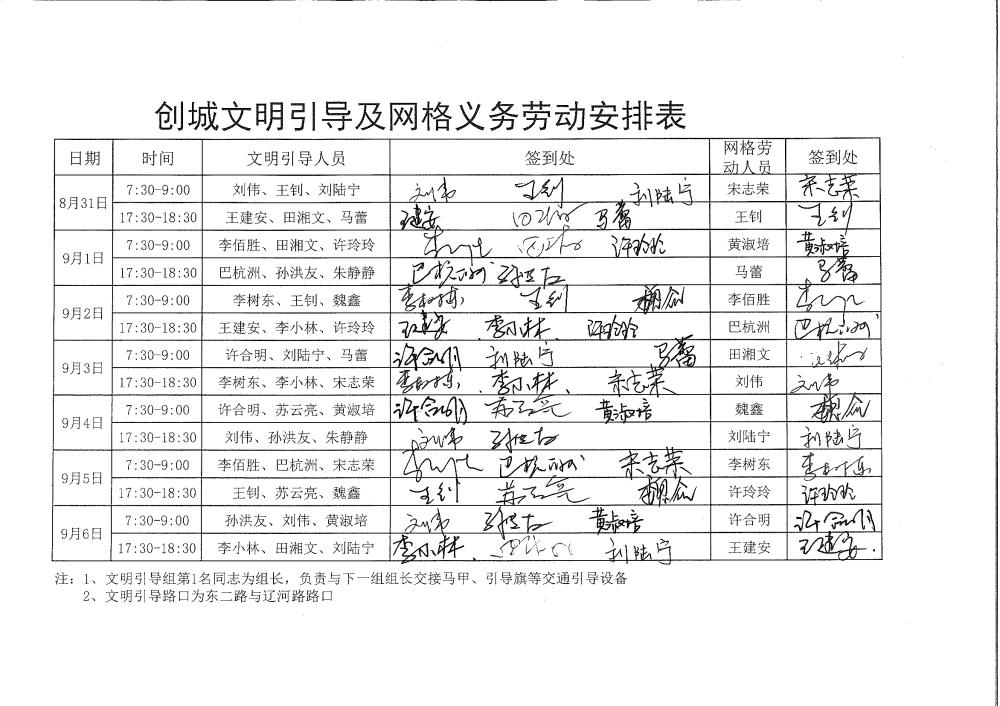 创城文明引导及网格义务劳动安排表
日期 时间 文明引导人员 签到处 网格劳动人员 签到处
8月31日 7:30-9:00 刘伟、王钊、刘陆宁 刘伟 王钊 刘陆宁 宋志荣 宋志荣
17:30-18:30 王建安、田湘文、马蕾 王建安 田湘文 马蕾 王钊 王钊
9月1日 7:30-9:00 李佰胜、田湘文、许玲玲 李佰胜 田湘文 许玲玲 黄淑培 黄淑培
17:30-18:30 巴杭洲、孙洪友、朱静静 巴杭洲 孙洪友 马蕾 马蕾
9月2日 7:30-9:00 李树东、王钊、魏鑫 李树东 王钊 魏鑫 李佰胜 李佰胜
17:30-18:30 王建安、李小林、许玲玲 王建安 李小林 许玲玲 巴杭洲 巴杭洲
9月3日 7:30-9:00 许合明、刘陆宁、马蕾 许合明 刘陆宁 马蕾 田湘文 田湘文
17:30-18:30 李树东、李小林、宋志荣 李树东 李小林 宋志荣 刘伟 刘伟
9月4日 7:30-9:00 许合明、苏云亮、黄淑培 许合明 苏云亮 黄淑培 魏鑫 魏鑫
17:30-18:30 刘伟、孙洪友、朱静静 刘伟 孙洪友 刘陆宁 刘陆宁
9月5日 7:30-9:00 李佰胜、巴杭洲、宋志荣 李佰胜 巴杭洲 宋志荣 李树东 李树东
17:30-18:30 王钊、苏云亮、魏鑫 王钊 苏云亮 魏鑫 许玲玲 许玲玲
9月6日 7:30-9:00 孙洪友、刘伟、黄淑培 刘伟 孙洪友 黄淑培 许合明 许合明
17:30-18:30 李小林、田湘文、刘陆宁 李小林 田湘文 刘陆宁 王建安 王建安
注：1、文明引导组第1名同志为组长，负责与下一组组长交接马甲、引导旗等交通引导设备
2、文明引导路口为东二路与辽河路路口